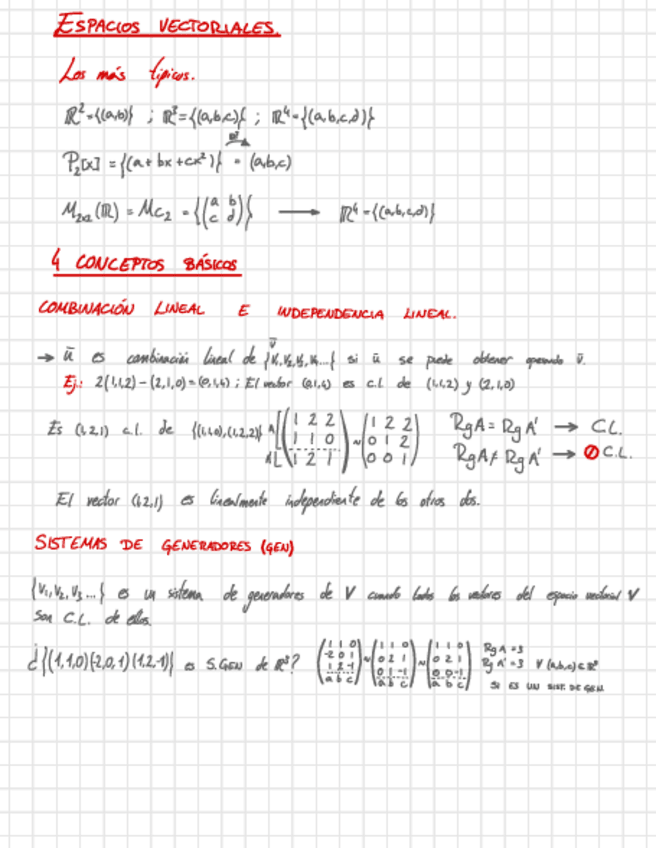 ESPACIOS VECTORIALES.
Los más típicos.
ℝ²={(a,b)} ; ℝ³={(a,b,c)} ; ℝ⁴={(a,b,c,d)}
P₂[x] = {(a + bx + cx²)} = (a,b,c)
M₂ₓ₂(ℝ) = Mc₂ = {(a b
c d)} → ℝ⁴={(a,b,c,d)}
4 CONCEPTOS BÁSICOS
COMBINACIÓN LINEAL E INDEPENDENCIA LINEAL.
→ ū es combinación lineal de {V₁,V₂,V₃,V₄...} si ū se puede obtener operando v̄.
Ej: 2(1,1,2) - (2,1,0) = (0,1,4) ; El vector (0,1,4) es c.l de (1,1,2) y (2,1,0)
Es (1,2,1) c.l. de {(1,1,0),(1,2,2)}
1 2 2
1 1 0
1 2 1
~
1 2 2
0 1 2
0 0 1
RgA = RgA' → C.L.
RgA ≠ RgA' → C.L.
El vector (1,2,1) es linealmente independiente de los otros dos.
SISTEMAS DE GENERADORES (GEN)
{V₁, V₂, V₃ ...} es un sistema de generadores de V cuando todos los vectores del espacio vectorial V
son C.L. de ellos.
¿{(1,1,0)(-2,0,1)(1,2,-1)} es S.GEN de ℝ³?
1 1 0
-2 0 1
1 2 -1
a b c
~
1 1 0
0 2 1
0 1 -1
a b c
~
1 1 0
0 2 1
0 0 -1
a b c
Rg A = 3
Rg A' = 3 ∀ (a,b,c) ∈ ℝ³
SI ES UN SIST. DE GEN.